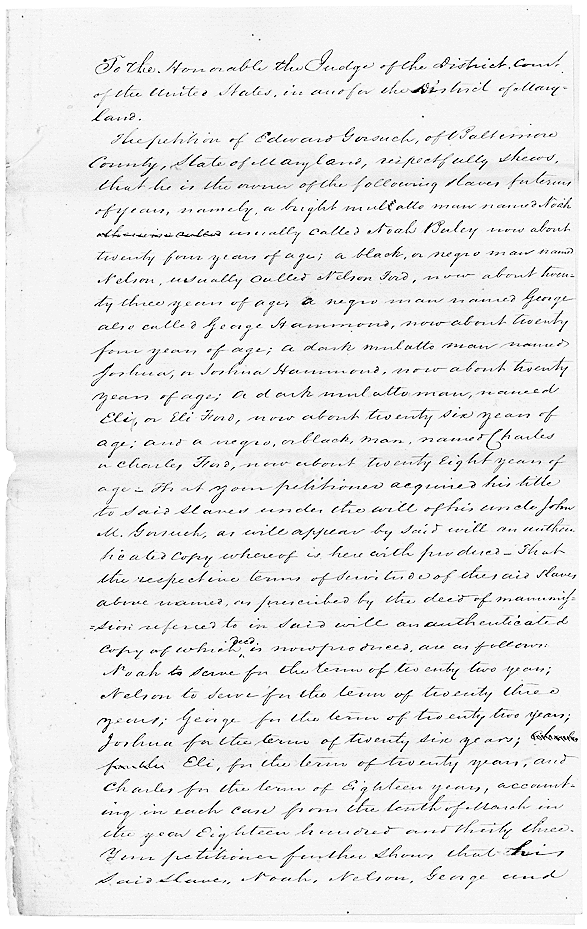 To the Honorable the Judge of the District Court
of the United States, in and for the District of Mary-
land.
The petition of Edward Gorsuch, of Baltimore
County, State of Maryland, respectfully shews,
that he is the owner of the following Slaves for terms
of years, namely, a bright mulatto man named Noah
usually called Noah Buley now about
twenty four years of age; a black, or negro man named
Nelson, usually called Nelson Ford, now about twen-
ty three years of age, a negro man named George
also called George Hammond, now about twenty
four years of age; a dark mulatto man named
Joshua, or Joshua Hammond, now about twenty
years of age; a dark mulatto man, named
Eli, or Eli Ford, now about twenty six years of
age; and a negro, or black, man, named Charles
or Charles Ford, now about twenty Eight years of
age – That your petitioner acquired his title
to said Slaves under the will of his uncle John
M. Gorsuch, as will appear by said will an authen
ticated copy whereof is herewith produced – That
the respective terms of servitude of the said Slaves
above named, as prescribed by the deed of manumis-
=sion referred to in said will an authenticated
copy of which deed is now produced, are as follows:
Noah to serve for the term of twenty two years;
Nelson to serve for the term of twenty three
years; George for the term of twenty two years;
Joshua for the term of twenty six years;
Eli, for the term of twenty years, and
Charles for the term of Eighteen years, account-
ing in each case from the tenth of March in
the year Eighteen hundred and thirty three.
Your petitioner further shows that his
said slaves, Noah, Nelson, George and